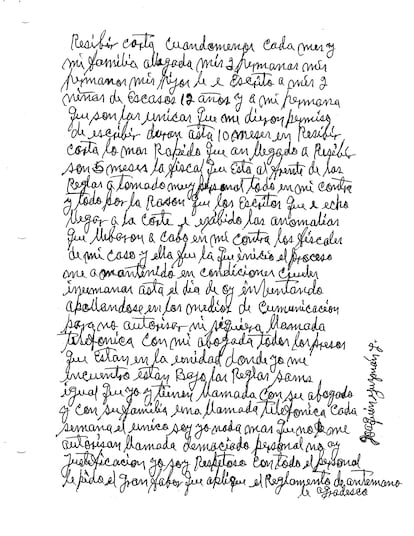 Resibir carta cuandomenos cada mes y
mi familia allegada mis 3 hermanas mis
hermanos mis hijos le e Escrito a mis 2
niñas de Escasos 12 años y a mi hermana
que son las unicas que me dieron permiso
de escribir duran asta 10 meses en Resibir
carta lo mas Rapido que an llegado a Resibir
son 5 meses la fiscal que Está al frente de las
Reglas a tomado muy personal todo en mi contra
y todo por la Rason que los Escritos que e echo
llegar a la corte e exibido las anomalias
que llebaron a cabo en mi contra los fiscales
de mi caso y ella fue la que inicio el proceso
me a mantenido en condiciones crueles
inumanas asta el dia de oy en inventando
apollandose en los medios de Comunicación
para no autorisar ni siquiera llamada
telefonica con mi abogada todos los presos
que Estan en la unidad donde yo me
encuentro estan Bajo las Reglas sams
igual que yo y tienen llamada con su abogado
y con su familia una llamada telefonica Cada
semana el unico soy yo nada mas que no me
autorisan llamada demaciado personal no ay
justificacion yo soy Respetoso con todo el personal
le pido el gran fabor que aplique el Reglamento de antemano
le agradesco
Joaquin Guzmán L.